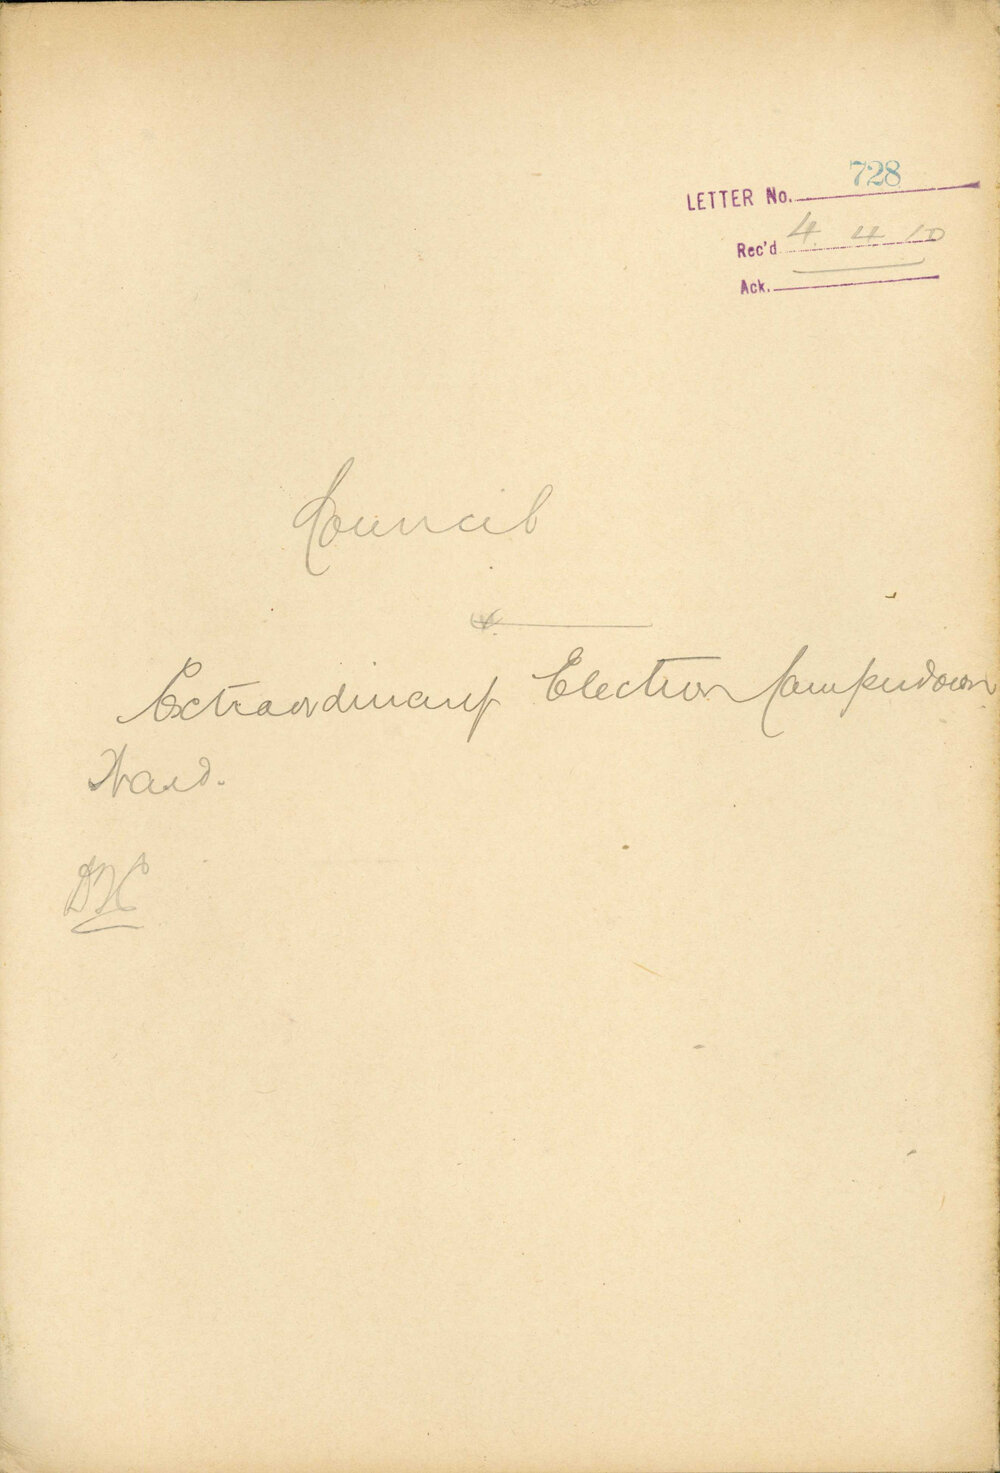 LETTER No. 728
Rec'd 4. 4. 10
Ack.
Council
Extraordinary Election Camperdown
Ward.